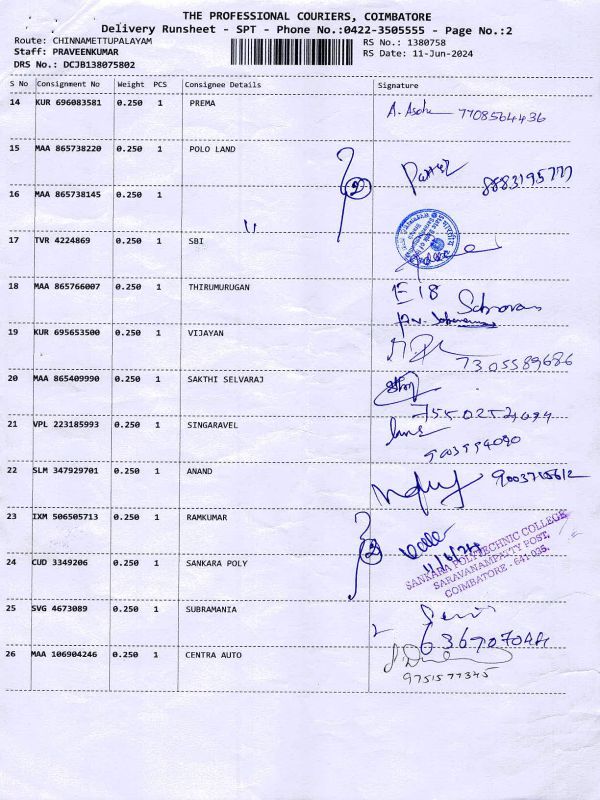 THE PROFESSIONAL COURIERS, COIMBATORE
Delivery Runsheet - SPT - Phone No.:0422-3505555 - Page No.:2
Route: CHINNAMETTUPALAYAM
RS No.: 1380758
Staff: PRAVEENKUMAR
RS Date: 11-Jun-2024
DRS No.: DCJB138075802
S No Consignment No Weight PCS Consignee Details Signature
14 KUR 696083581 0.250 1 PREMA
7708564436
15 MAA 865738220 0.250 1 POLO LAND
2
8883195777
16 MAA 865738145 0.250 1
17 TVR 4224869 0.250 1 SBI
18 MAA 865766007 0.250 1 THIRUMURUGAN
E18
19 KUR 695653500 0.250 1 VIJAYAN
7305589686
20 MAA 865409990 0.250 1 SAKTHI SELVARAJ
21 VPL 223185993 0.250 1 SINGARAVEL
22 SLM 347929701 0.250 1 ANAND
23 IXM 506505713 0.250 1 RAMKUMAR
2
11/6/24
SANKARA POLYTECHNIC COLLEGE
SARAVANAMPATTY POST,
COIMBATORE - 641 035.
24 CUD 3349206 0.250 1 SANKARA POLY
25 SVG 4673089 0.250 1 SUBRAMANIA
26 MAA 106904246 0.250 1 CENTRA AUTO
9751577345